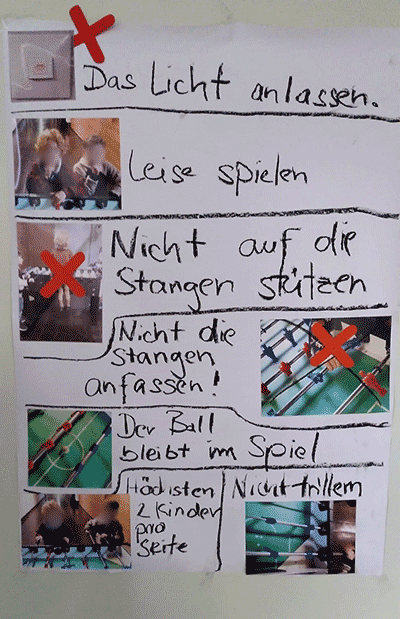 Das Licht anlassen.
Leise spielen
Nicht auf die
Stangen stützen
Nicht die
Stangen
anfassen!
Der Ball
bleibt im Spiel
Höchsten
2 Kinder
pro
Seite
Nicht trillern